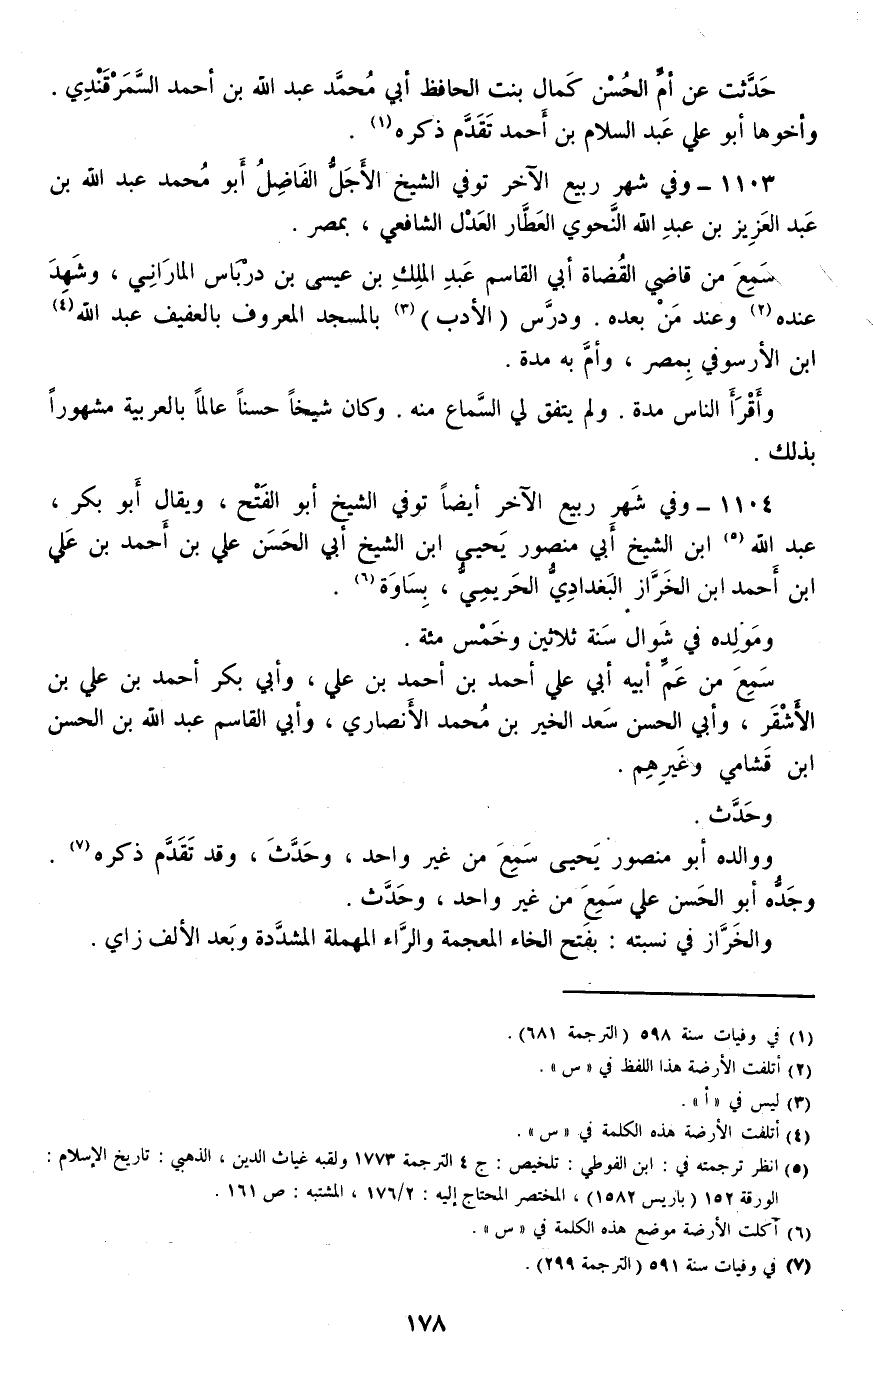 حَدَّثت عن أمِّ الحُسْن كَمال بنت الحافظ أبي مُحمَّد عبد الله بن أحمد السَّمَرْقَنْدي .
وأخوها أبو علي عَبد السلام بن أَحمد تَقَدَّم ذكره(١) .
١١٠٣ ــ وفي شهر ربيع الآخر توفي الشيخ الأَجَلُّ الفَاضِلُ أَبو مُحمد عبد الله بن
عَبد العَزِيز بن عبدِ الله النَّحوي العَطَّار العَدْل الشافعي ، بمصر .
سَمِعَ من قاضي القُضاة أبي القاسم عَبدِ الملِكِ بن عيسى بن دربْاس المارَانِي ، وشَهِدَ
عنده(٢) وعند مَنْ بعده . ودرَّس ( الأدب )(٣) بالمسجد المعروف بالعفيف عبد الله(٤)
ابن الأرسوفي بِمصر ، وأمَّ به مدة .
وأَقْرَأَ الناس مدة . ولم يتفق لي السَّماع منه . وكان شيخاً حسناً عالماً بالعربية مشهوراً
بذلك .
١١٠٤ ــ وفي شَهر ربيع الآخر أيضاً توفي الشيخ أبو الفَتْح ، ويقال أَبو بكر ،
عبد الله(٥) ابن الشيخ أَبي منصور يَحيى ابن الشيخ أبي الحَسَن علي بن أَحمد بن عَلي
ابن أَحمد ابن الخَرَّاز البَغدادِيُّ الحَريمِيُّ ، بِسَاوَة(٦) .
ومَولِده في شَوال سَنة ثلاثين وخَمْس مئة .
سَمِعَ من عَمِّ أبيه أبي علي أحمد بن أحمد بن علي ، وأبي بكر أحمد بن علي بن
الأَشْقَر ، وأبي الحسن سَعد الخير بن مُحمد الأَنصاري ، وأبي القاسم عبد الله بن الحسن
ابن قَشامي وغَيرِهِم .
وحَدَّث .
ووالده أبو منصور يَحيى سَمِعَ من غير واحد ، وحَدَّثَ ، وقد تَقَدَّم ذكره(٧) .
وجَدُّه أبو الحَسن علي سَمِعَ من غير واحد ، وحَدَّث .
والخَرَّاز في نسبته : بفَتح الخاء المعجمة والرَّاء المهملة المشدَّدة وبَعد الألف زاي .
(١) في وفيات سنة ٥٩٨ (الترجمة ٦٨١) .
(٢) أتلفت الأرضة هذا اللفظ في « س » .
(٣) ليس في « أ » .
(٤) أتلفت الأرضة هذه الكلمة في « س » .
(٥) انظر ترجمته في : ابن الفوطي : تلخيص : ج ٤ الترجمة ١٧٧٣ ولقبه غياث الدين ، الذهبي : تاريخ الإسلام :
الورقة ١٥٢ ( باريس ١٥٨٢) ، المختصر المحتاج إليه : ١٧٦/٢ ، المشتبه : ص ١٦١ .
(٦) أكلت الأرضة موضع هذه الكلمة في « س » .
(٧) في وفيات سنة ٥٩١ (الترجمة ٢٩٩) .
١٧٨